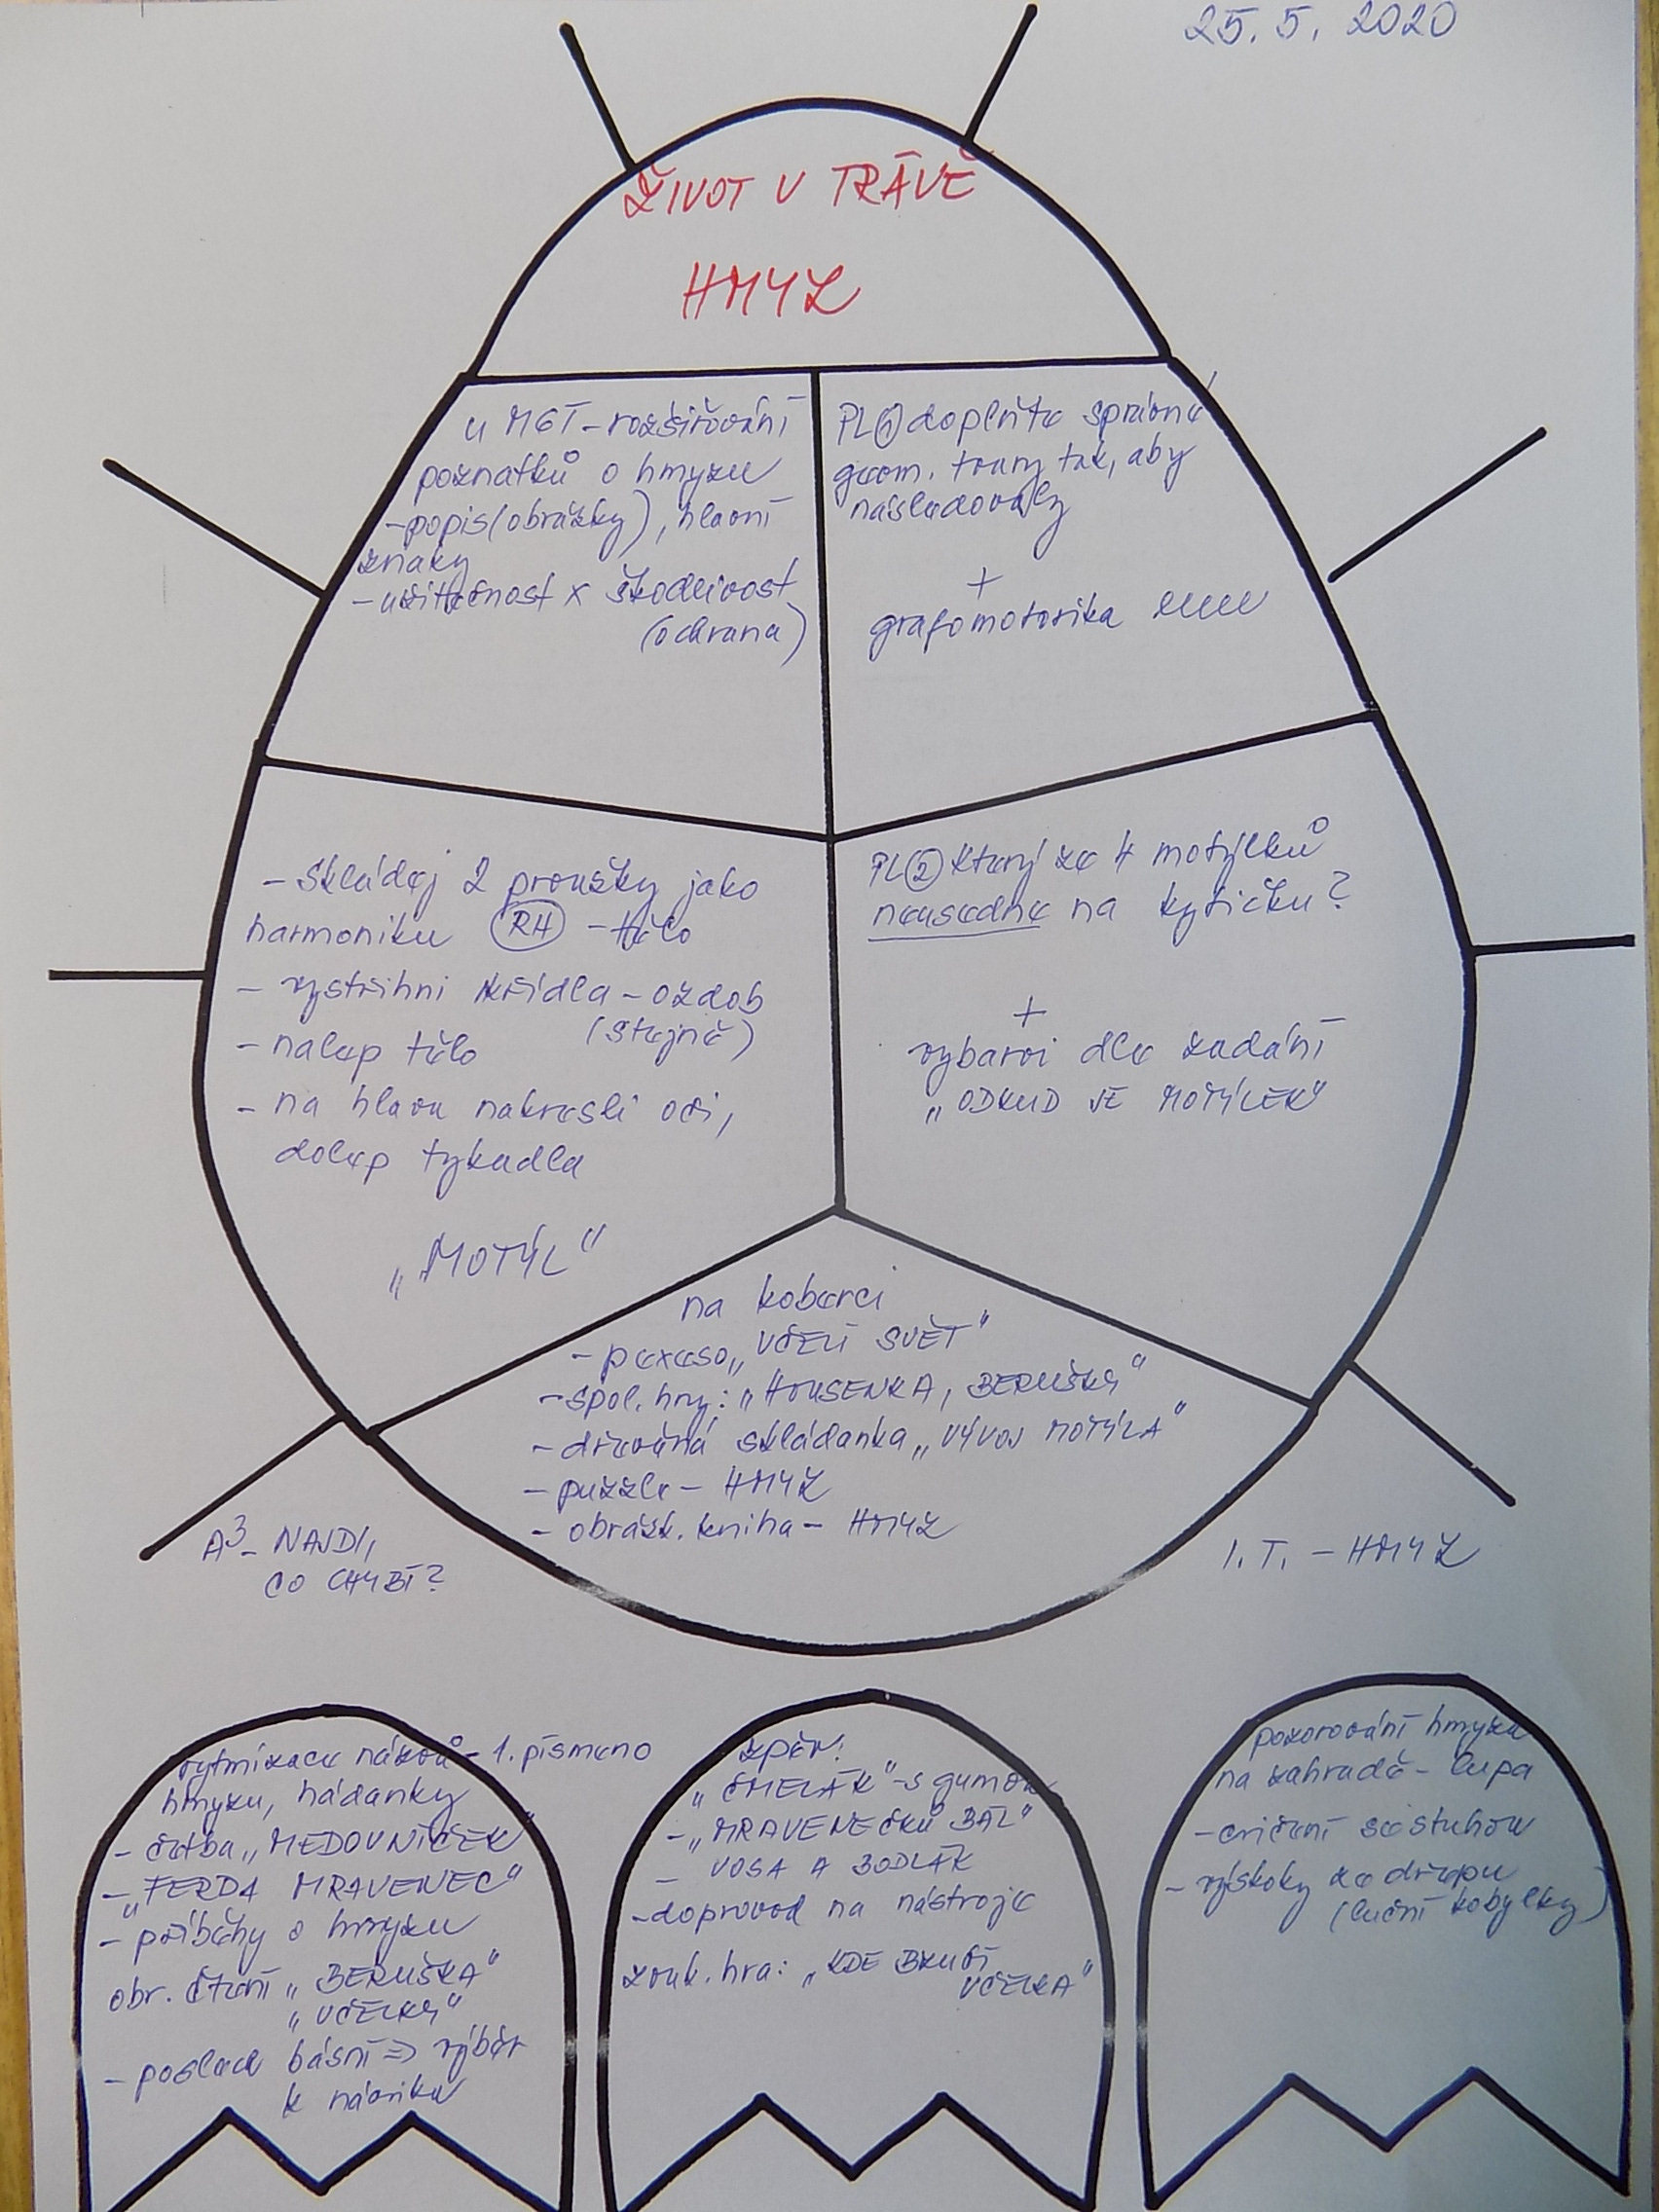 25. 5. 2020
ŽIVOT V TRÁVĚ
HMYZ
u MGT - rozšiřování
poznatků o hmyzu
- popis (obrázky), hlavní
znaky
- užitečnost x škodlivost
(ochrana)
PL ① doplňte správné
geom. tvary tak, aby
následovaly
+
grafomotorika
- Skládej 2 proužky jako
harmoniku RH - tělo
- vystřihni křídla - ozdob
(stejně)
- nalep tělo
- na hlavu nakresli oči,
dolep tykadla
„MOTÝL"
PL ② který ze 4 motýlků
neusedne na kytičku?
+
vybarvi dle zadání
„ODKUD JE MOTÝLEK"
na koberci
- pexeso „VČELÍ SVĚT"
- spol. hry: „HOUSENKA, BERUŠKY"
- dřevěná skládanka „VÝVOJ MOTÝLA"
- puzzle - HMYZ
- obrázk. kniha - HMYZ
A3 - NAJDI,
CO CHYBÍ?
I. T. - HMYZ
rytmizace názvů - 1. písmeno
hmyzu, hádanky
- četba „MEDOVNÍČEK"
- „FERDA MRAVENEC"
- příběhy o hmyzu
obr. čtení „BERUŠKA"
„VČELKY"
- poslech básní => výběr
k nácviku
zpěv:
„ČMELÁK" - s gumou
- „MRAVENEČKŮ BÁL"
- VOSA A BODLÁK
- doprovod na nástroje
zvuk. hra: „KDE BZUČÍ
VČELKA"
pozorování hmyzu
na zahradě - lupa
- cvičení se stuhou
- výskoky ze dřepu
(luční kobylky)